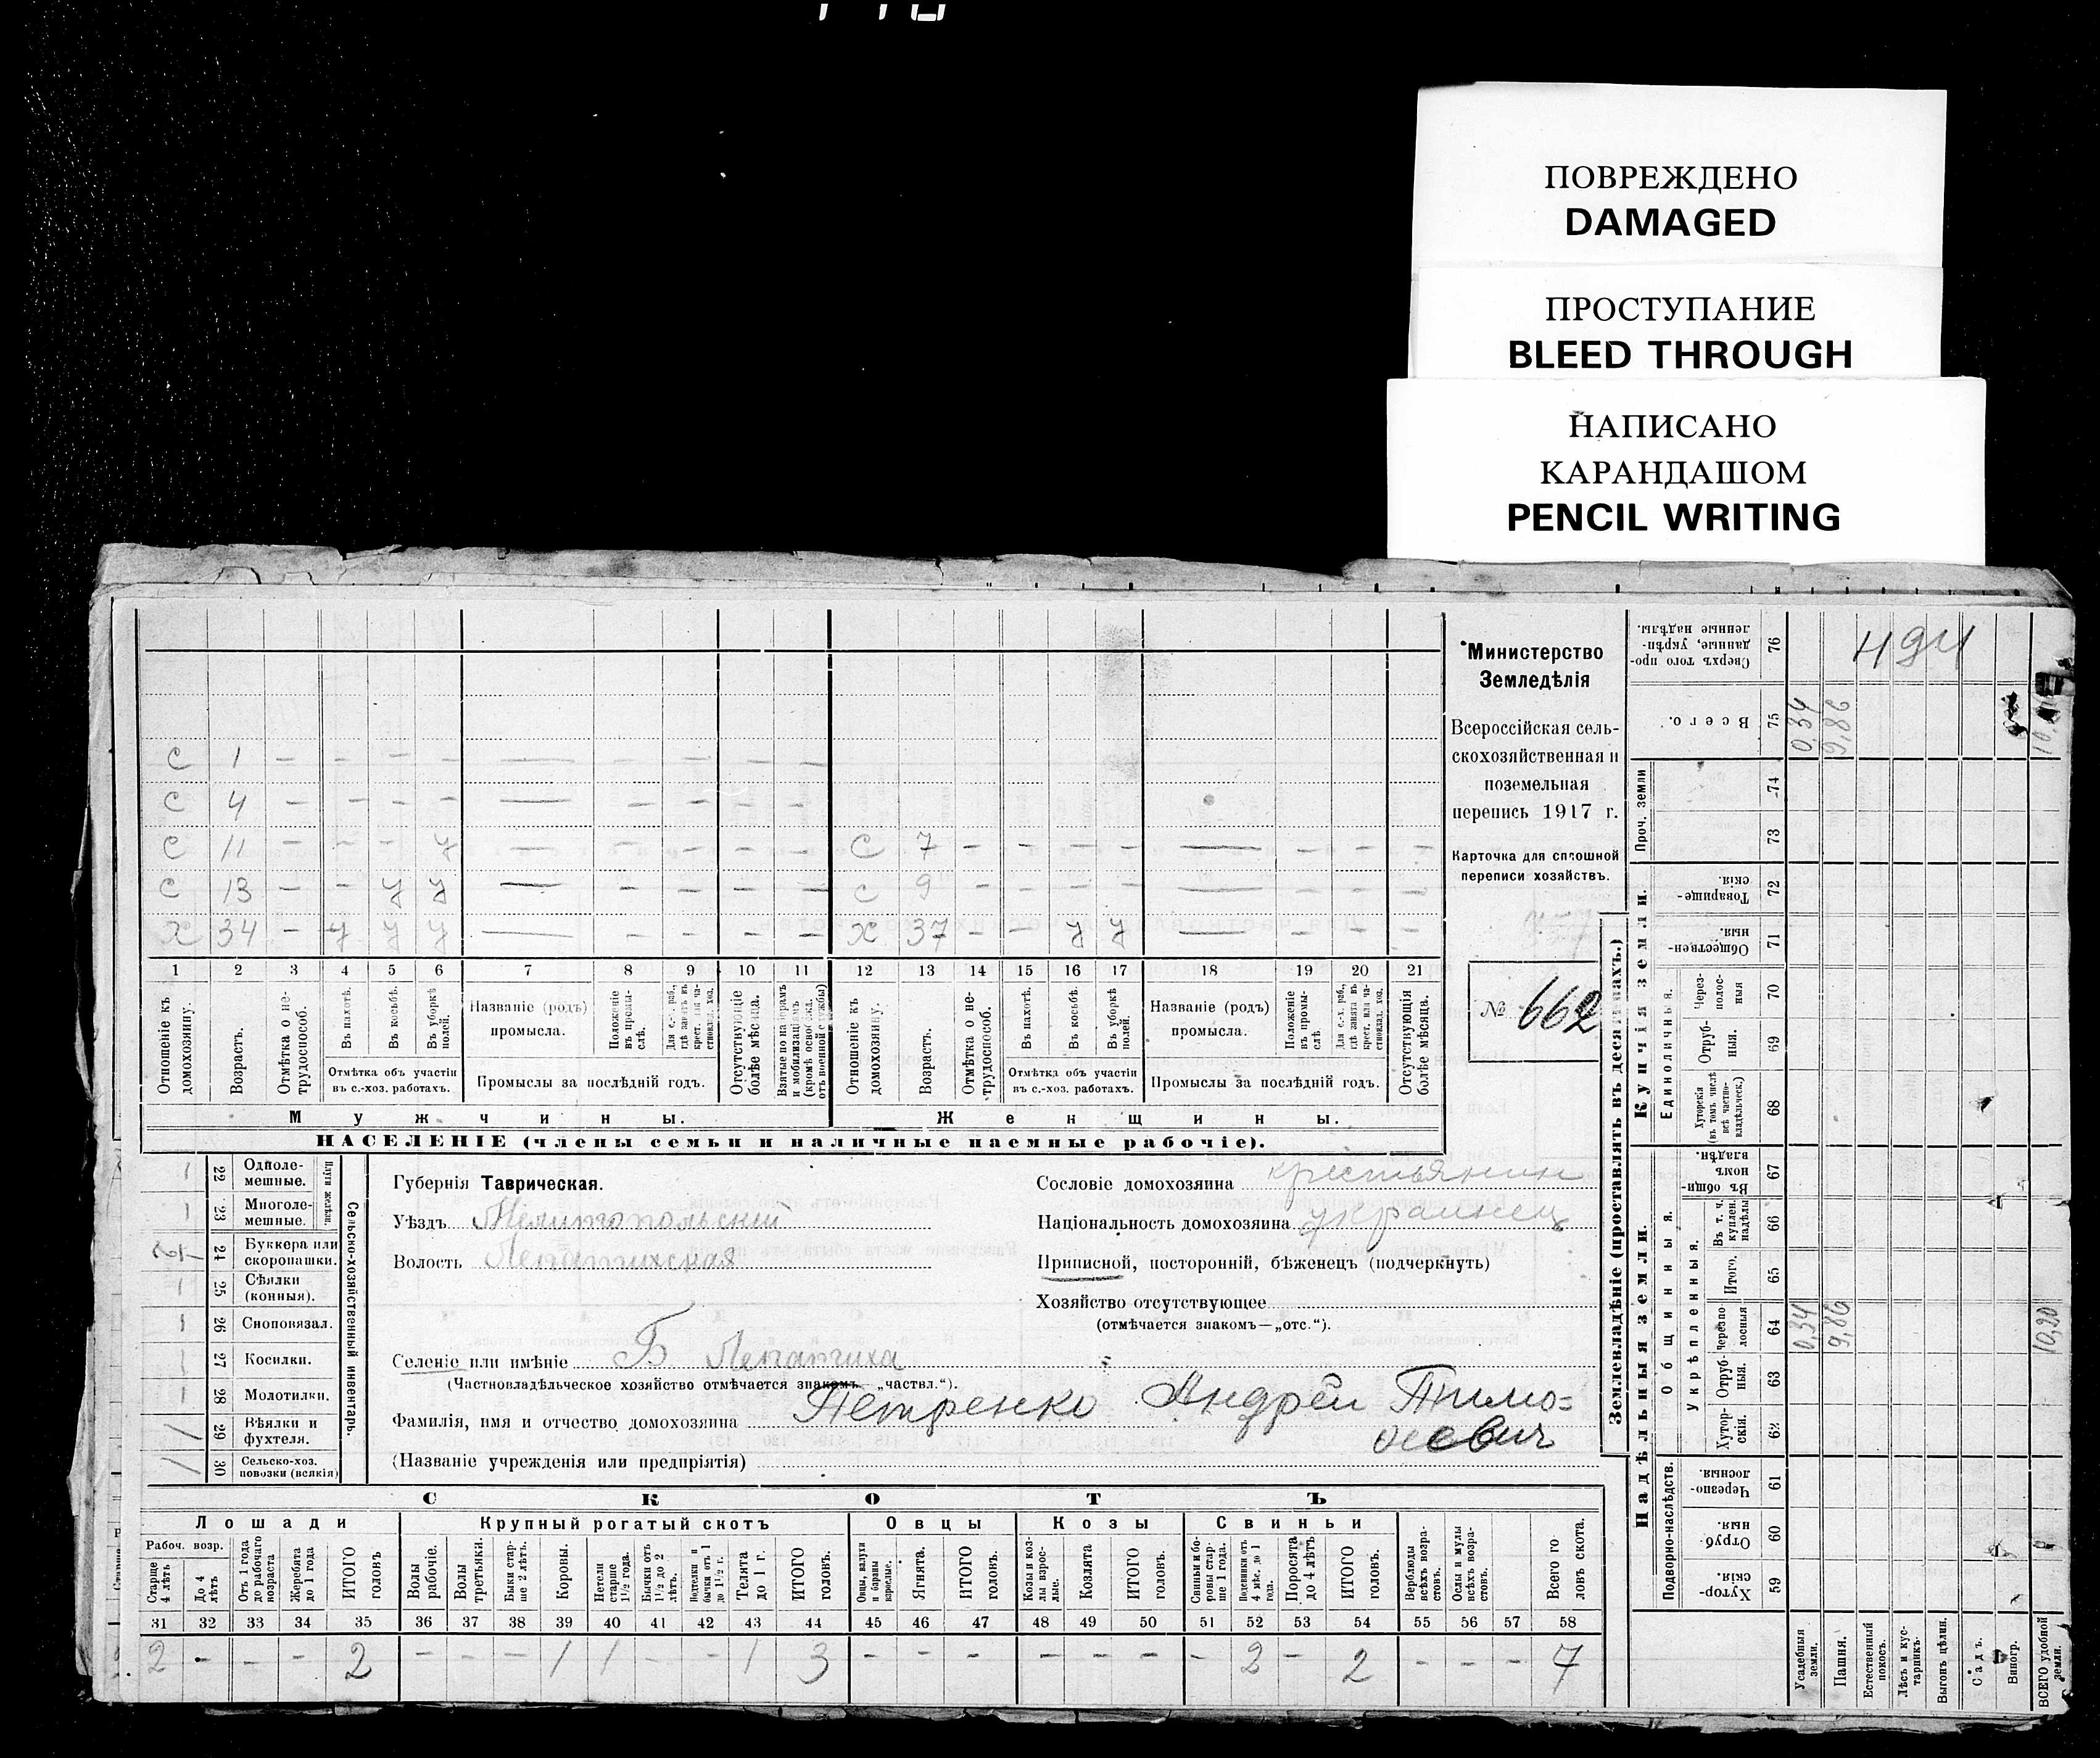 ПОВРЕЖДЕНО
DAMAGED
ПРОСТУПАНИЕ
BLEED THROUGH
НАПИСАНО
КАРАНДАШОМ
PENCIL WRITING
С 1 – – – – – – – – –
С 4 – – – – – – – – –
С 11 – – – У – – – – – С 7 – – – – – – – –
С 13 – – У У – – – – – С 9 – – – – – – – –
Х 34 – У У У – – – – – Х 37 – – У У – – – –
1 2 3 4 5 6 7 8 9 10 11 12 13 14 15 16 17 18 19 20 21
Отношеніе къ домохозяину.
Возрастъ.
Отмѣтка о не-трудоспособ.
Въ пахотѣ.
Въ косьбѣ.
Въ уборкѣ полей.
Названіе (родъ) промысла.
Положеніе въ промы-слѣ.
Отсутствующіе болѣе мѣсяца.
Отношеніе къ домохозяину.
Возрастъ.
Отмѣтка о не-трудоспособ.
Въ пахотѣ.
Въ косьбѣ.
Въ уборкѣ полей.
Названіе (родъ) промысла.
Положеніе въ промы-слѣ.
Отсутствующія болѣе мѣсяца.
Отмѣтка объ участіи въ с.-хоз. работахъ.
Промыслы за послѣдній годъ.
Отмѣтка объ участіи въ с.-хоз. работахъ.
Промыслы за послѣдній годъ.
Мужчины.
Женщины.
НАСЕЛЕНІЕ (члены семьи и наличные наемные рабочіе).
Министерство
Земледѣлія
Всероссійская сель-
скохозяйственная и
поземельная
перепись 1917 г.
Карточка для сплошной
переписи хозяйствъ.
№ 662
Сельско-хозяйственный инвентарь.
Плуги желѣзн.
22 Одноле-мешные. 1
23 Многоле-мешные. 1
24 Буккера или скоропашки.
25 Сѣялки (конныя). 1
26 Сноповязал. 1
27 Косилки. 1
28 Молотилки. 1
29 Вѣялки и фухтеля. 1
30 Сельско-хоз. повозки (всякія) 1
Губернія Таврическая.
Уѣздъ Мелитопольскій
Волость Лепатихская
Сословіе домохозяина крестьянин
Національность домохозяина украинец
Приписной, посторонній, бѣженец (подчеркнуть)
Хозяйство отсутствующее
(отмѣчается знакомъ—„отс.“).
Селеніе или имѣніе Б Лепатиха
(Частновладѣльческое хозяйство отмѣчается знакомъ „частвл.“).
Фамилія, имя и отчество домохозяина Петренко Андрей Тимо=
феевич
(Названіе учрежденія или предпріятія)
СКОТЪ
Лошади Крупный рогатый скотъ Овцы Козы Свиньи
Рабоч. возр.
Старше 4 лѣтъ
До 4 лѣтъ
Отъ 1 года до рабочаго возраста
Жеребята до 1 года
ИТОГО головъ
Волы рабочіе.
Волы третьяки.
Быки стар-ше 2 лѣтъ.
Коровы.
Нетели старше 1½ года.
Бычки отъ 1½ до 2 лѣтъ.
Телята до 1 г.
ИТОГО головъ.
Ягнята.
ИТОГО головъ.
Козы и коз-лы взрос-лые.
Козлята
ИТОГО головъ.
Свиньи и бо-ровы стар-ше 1 года.
Поросята до 4 лѣтъ
ИТОГО головъ.
Верблюды всѣхъ возра-стовъ.
Ослы и мулы всѣхъ возра-стовъ.
Всего го-ловъ скота.
31 32 33 34 35 36 37 38 39 40 41 42 43 44 45 46 47 48 49 50 51 52 53 54 55 56 57 58
2 – – – 2 – – – 1 1 – – 1 3 – – – – – – – 2 – 2 – – – 7
Землевладѣніе (проставлять въ десятинахъ.)
Купчія земли.
Надѣльныя земли.
494
76 Сверхъ того про-данные, укрѣп-ленные надѣлы.
75 Всего. 0,34 9,86
Проч. земли
74
73
72 Товарище-скія.
71 Обществен-ныя
Единоличныя.
70 Через-полос-ныя
69 Отруб-ныя.
68 Хуторскія (въ томъ числѣ всѣ частно-владѣльческ.)
Общинныя.
67 Въ общин-номъ владѣн.
Укрѣпленныя.
66 Въ т. ч. куплен. надѣлы
65 Итого.
64 Черезпо-лосныя 0,34 9,86 10,20
63 Отруб-ныя.
62 Хутор-скія.
Подворно-наслѣдств.
61 Черезпо-лосныя.
60 Отруб-ныя
59 Хутор-скія.
Усадебныя земли.
Пашня.
Естественный покосъ.
Лѣсъ и кус-тарникъ.
Выгонъ цѣлин.
Садъ.
Виногр.
ВСЕГО удобной земли.